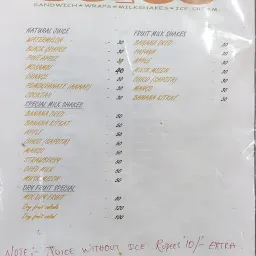 SANDWICH • WRAPS • MILKSHAKES • ICE CREAM
NATURAL JUICE
WATERMELON - 30
BLACK GRAPES - 30
PINEAPPLE - 30
MOSAMBI - 40
ORANGE - 30
POMEGRANATE (ANNAR) - 30
COCKTAIL - 30
SPECIAL MILK SHAKES
BANANA OREO - 50
BANANA KITKAT - 50
APPLE - 50
CHIKU (SAPOTA) - 50
MANGO - 50
STRAWBERRY - 50
OREO MILK - 50
MUSK MELON - 50
DRY FRUIT SPECIAL
MIX DRY FRUIT - 80
Dry fruit - 120
Dry fruit - 100
FRUIT MILK SHAKES
BANANA OREO - 30
PAPAYA - 30
APPLE - 30
MUSK MELON - 30
CHIKU (SAPOTA) - 30
MANGO - 30
BANANA KITKAT - 30
NOTE :- JUICE WITHOUT ICE Rupees 10/- EXTRA